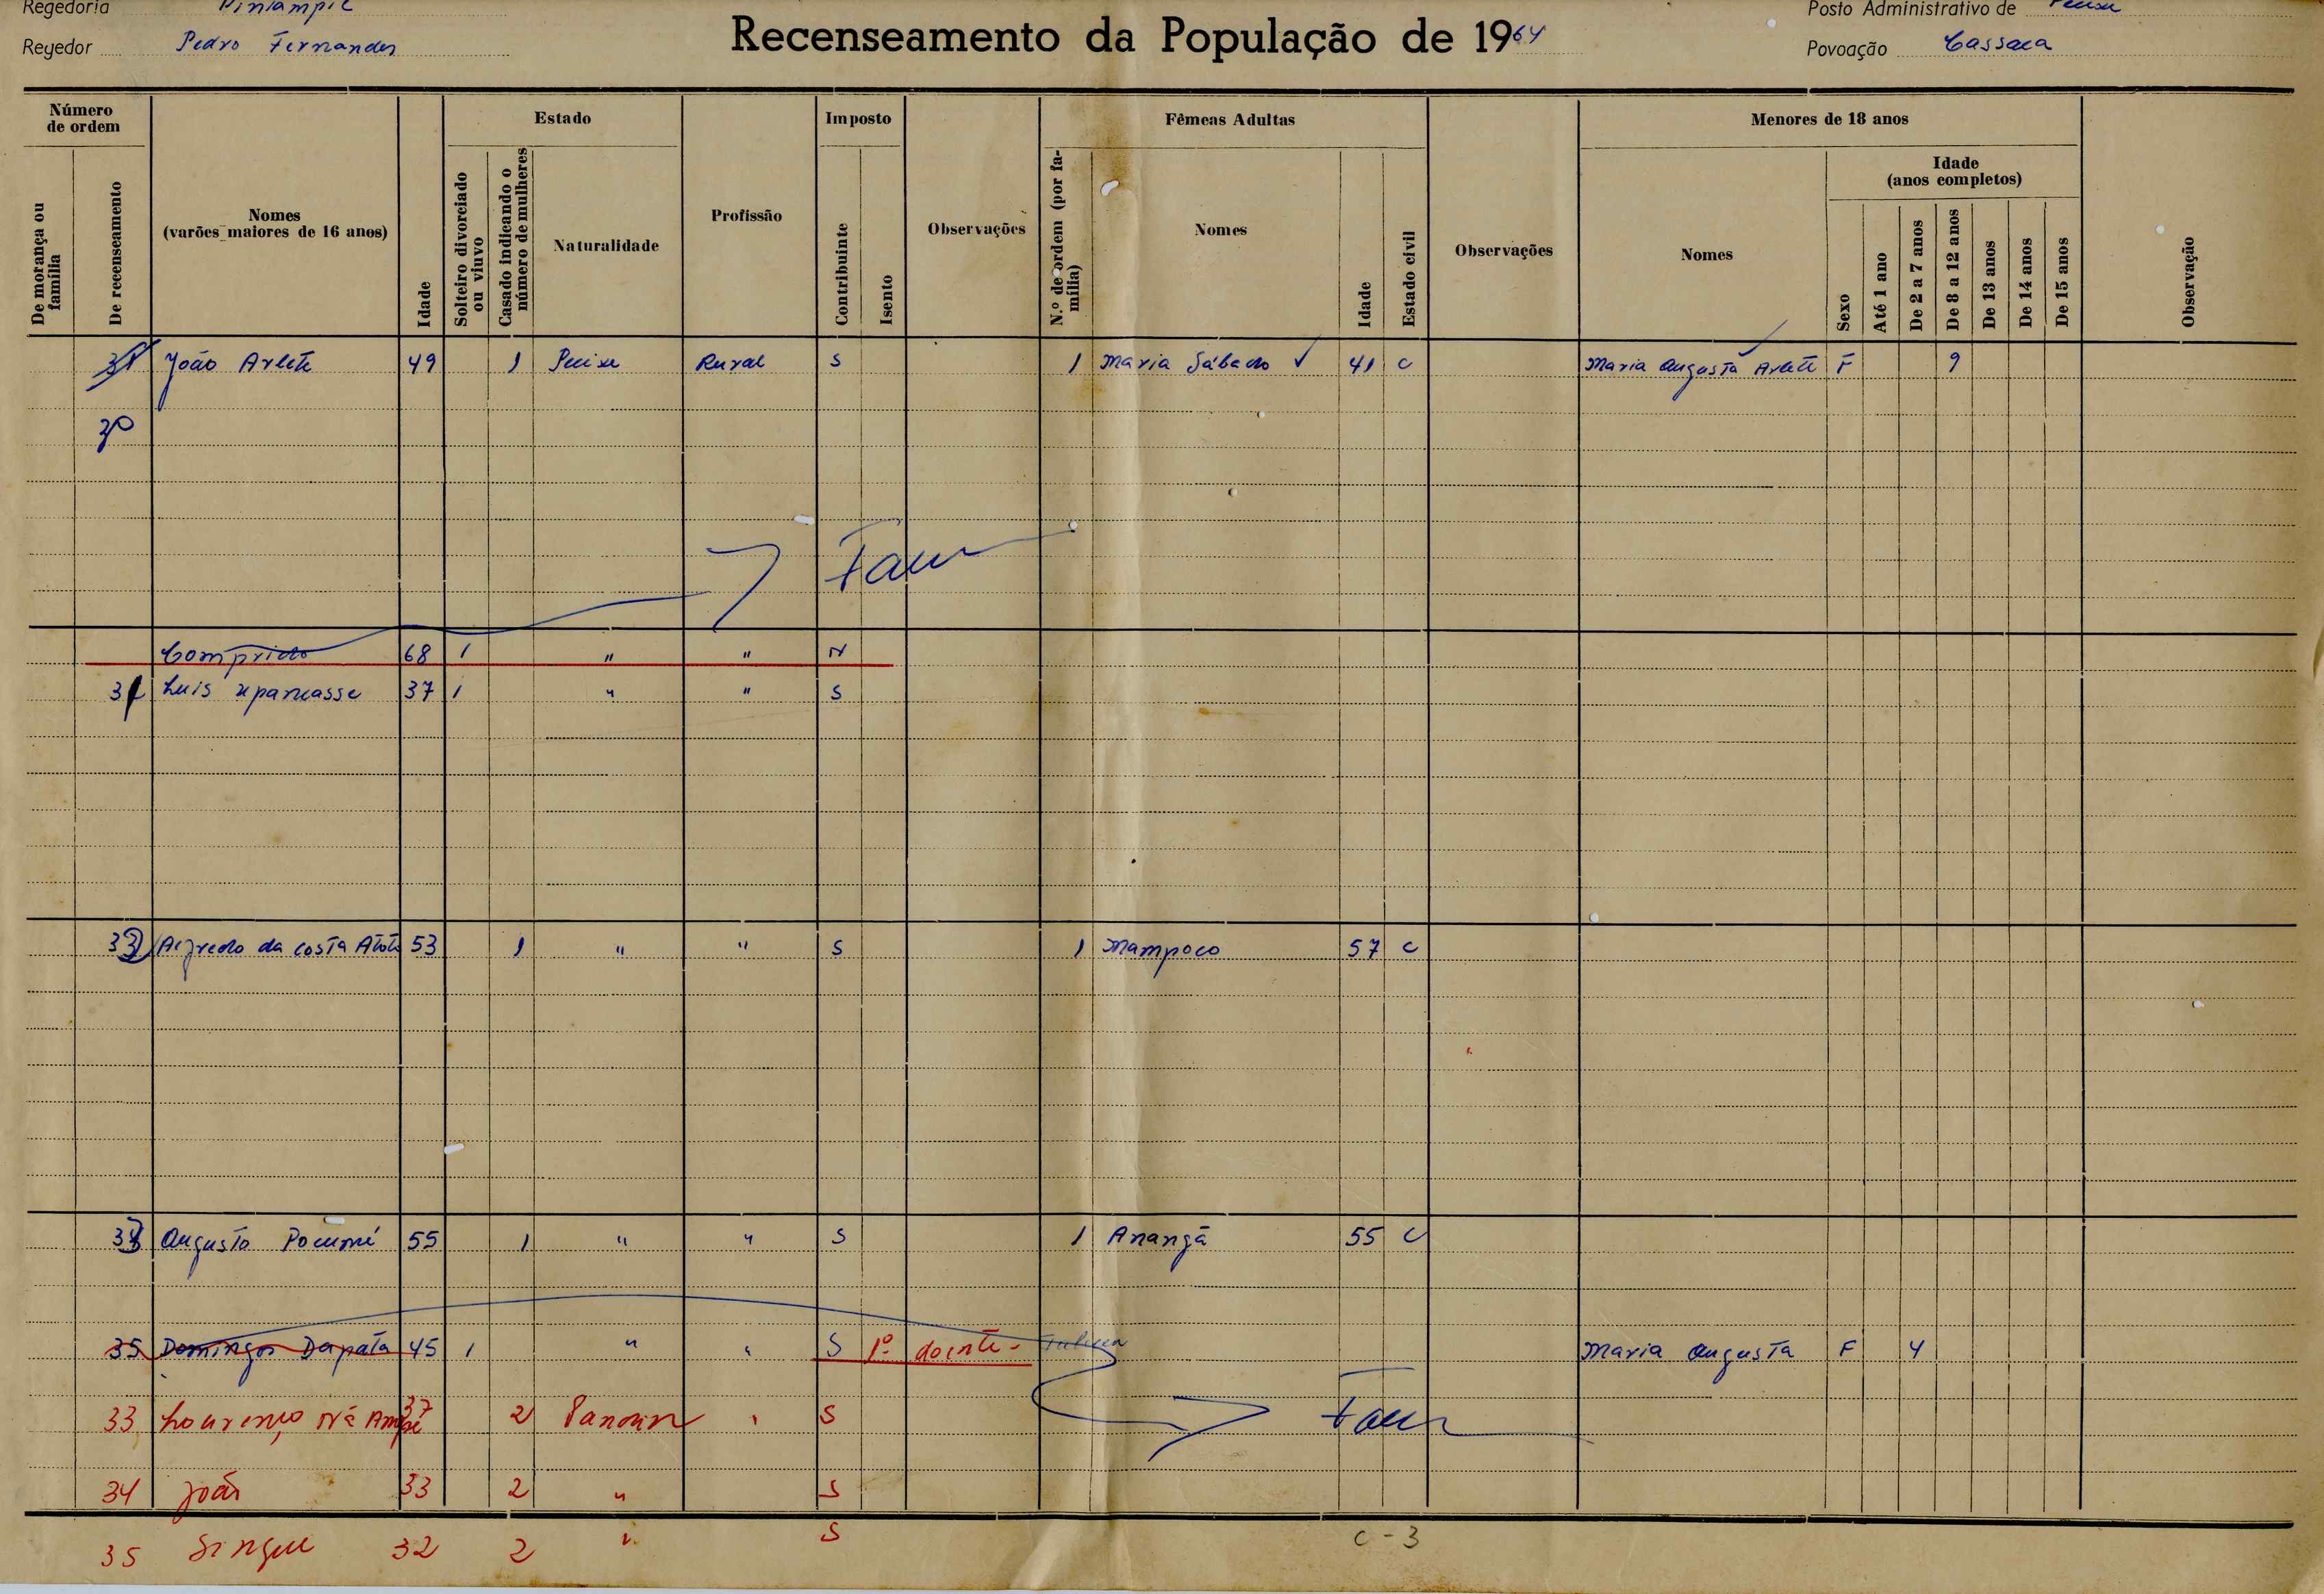 Regedoria
Regedor Pedro Fernandes
Recenseamento da População de 1964
Posto Administrativo de Pecixe
Povoação Cassaca
Número de ordem
De morança ou família
De recenseamento
Nomes
(varões maiores de 16 anos)
Idade
Estado
Solteiro divorciado ou viuvo
Casado indicando o número de mulheres
Naturalidade
Profissão
Imposto
Contribuinte
Isento
Observações
Fêmeas Adultas
N.º de ordem (por família)
Nomes
Idade
Estado civil
Observações
Menores de 18 anos
Nomes
Idade
(anos completos)
Sexo
Até 1 ano
De 2 a 7 anos
De 8 a 12 anos
De 13 anos
De 14 anos
De 15 anos
Observação
João Arlete 49 1 Pecixe Rural S 1 Maria Sábado ✓ 41 C Maria Augusta Arlete F 9
30
Comprido 68 1 " " N
Luis 37 1 " " S
Alfredo da Costa 53 1 " " S 1 Mampoco 57 C
Augusto 55 1 " " S 1 Anangã 55 C
35 Domingos Dapata 45 1 " " S 1º doente - Maria Augusta F 4
33 Lourenço Ná Ampé 37 2 " S
34 João 33 2 " S
35 Singue 32 2 " S
C - 3